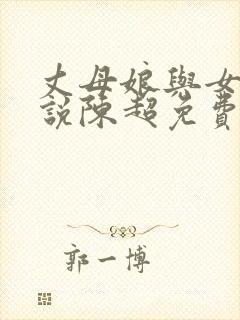 丈母娘與女
說陳超免費
郭一博